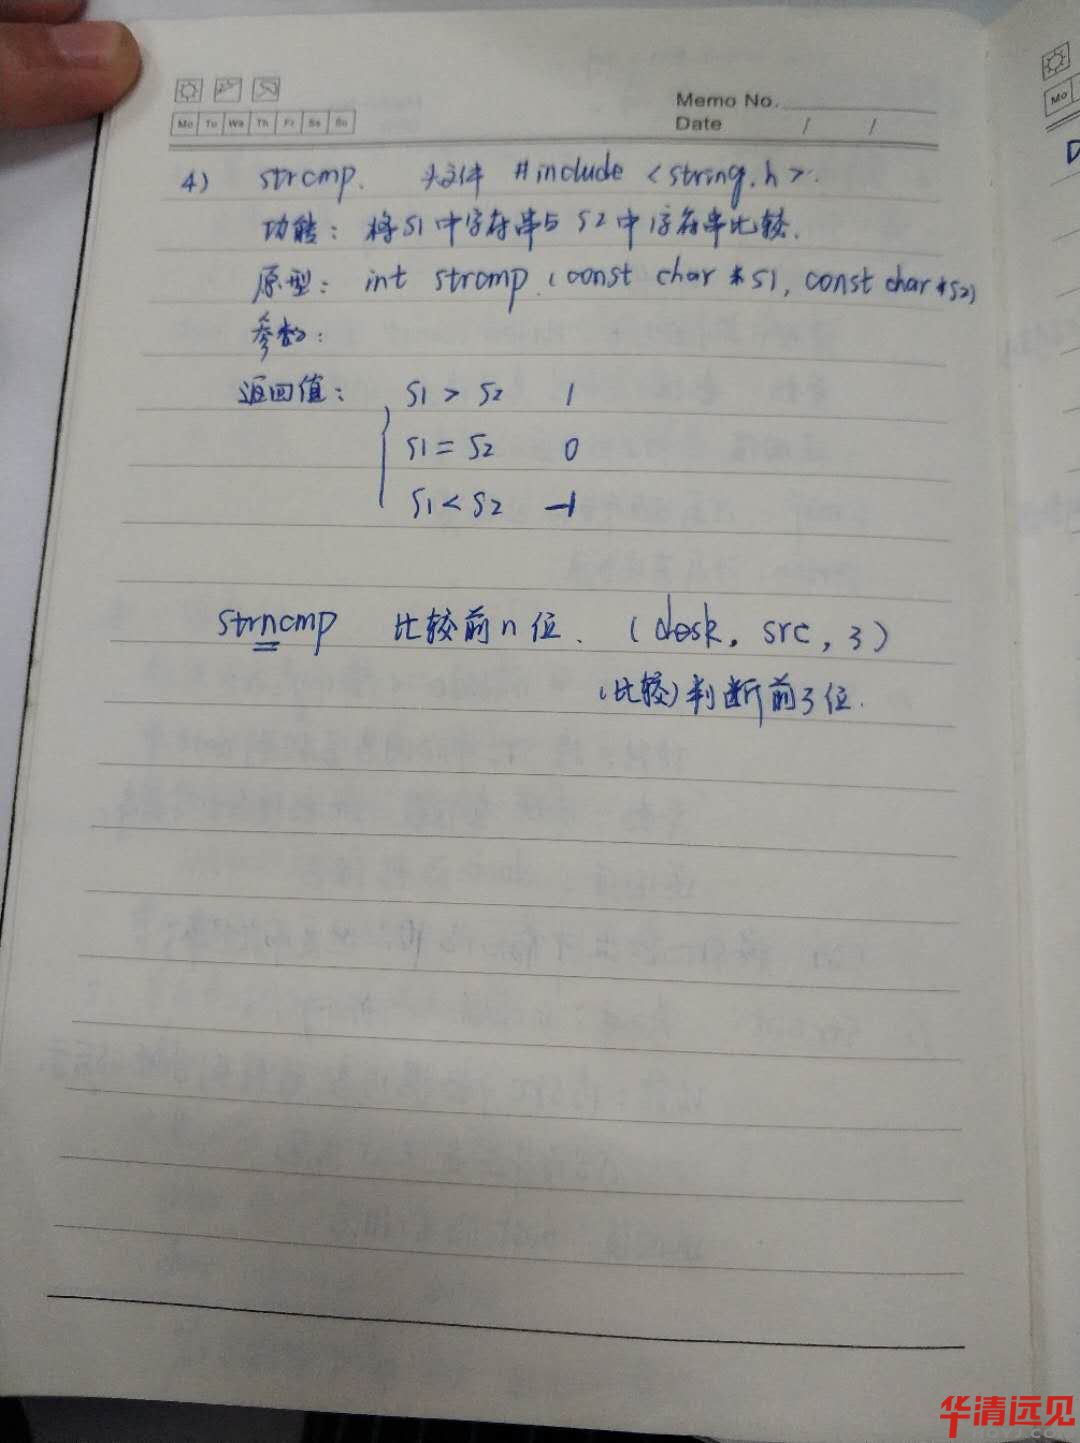 Memo No.
Mo Tu We Th Fr Sa Su
Date / /
4) strcmp. 头文件 #include <string.h>.
功能: 将S1中字符串与S2中字符串比较.
原型: int strcmp (const char *S1, const char *S2)
参数:
返回值: S1 > S2 1
S1 = S2 0
S1 < S2 -1
strncmp 比较前n位. (desk, src, 3)
(比较)判断前3位.
Mo
华清远见
HQYJ.COM